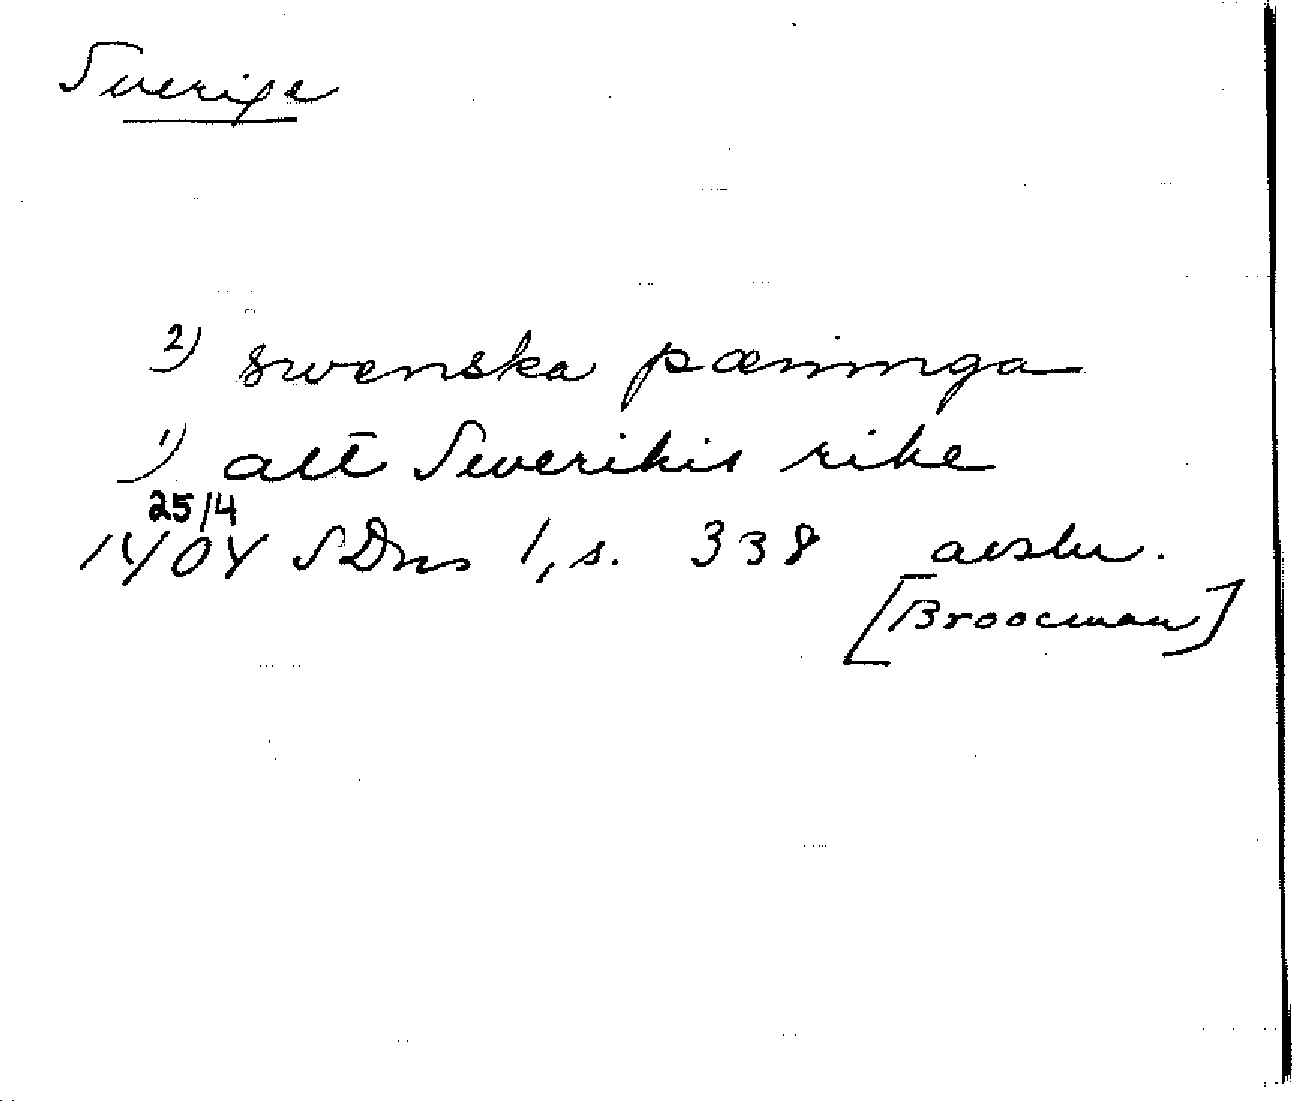 Sverige
2) swenska pæninga
1) alt Swerikis rike
25/4
1404 SDns 1, s. 338 avskr.
[Broocman]